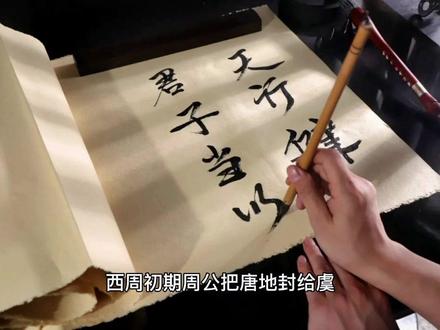 天行健
君子当以
西周初期周公把唐地封给虞